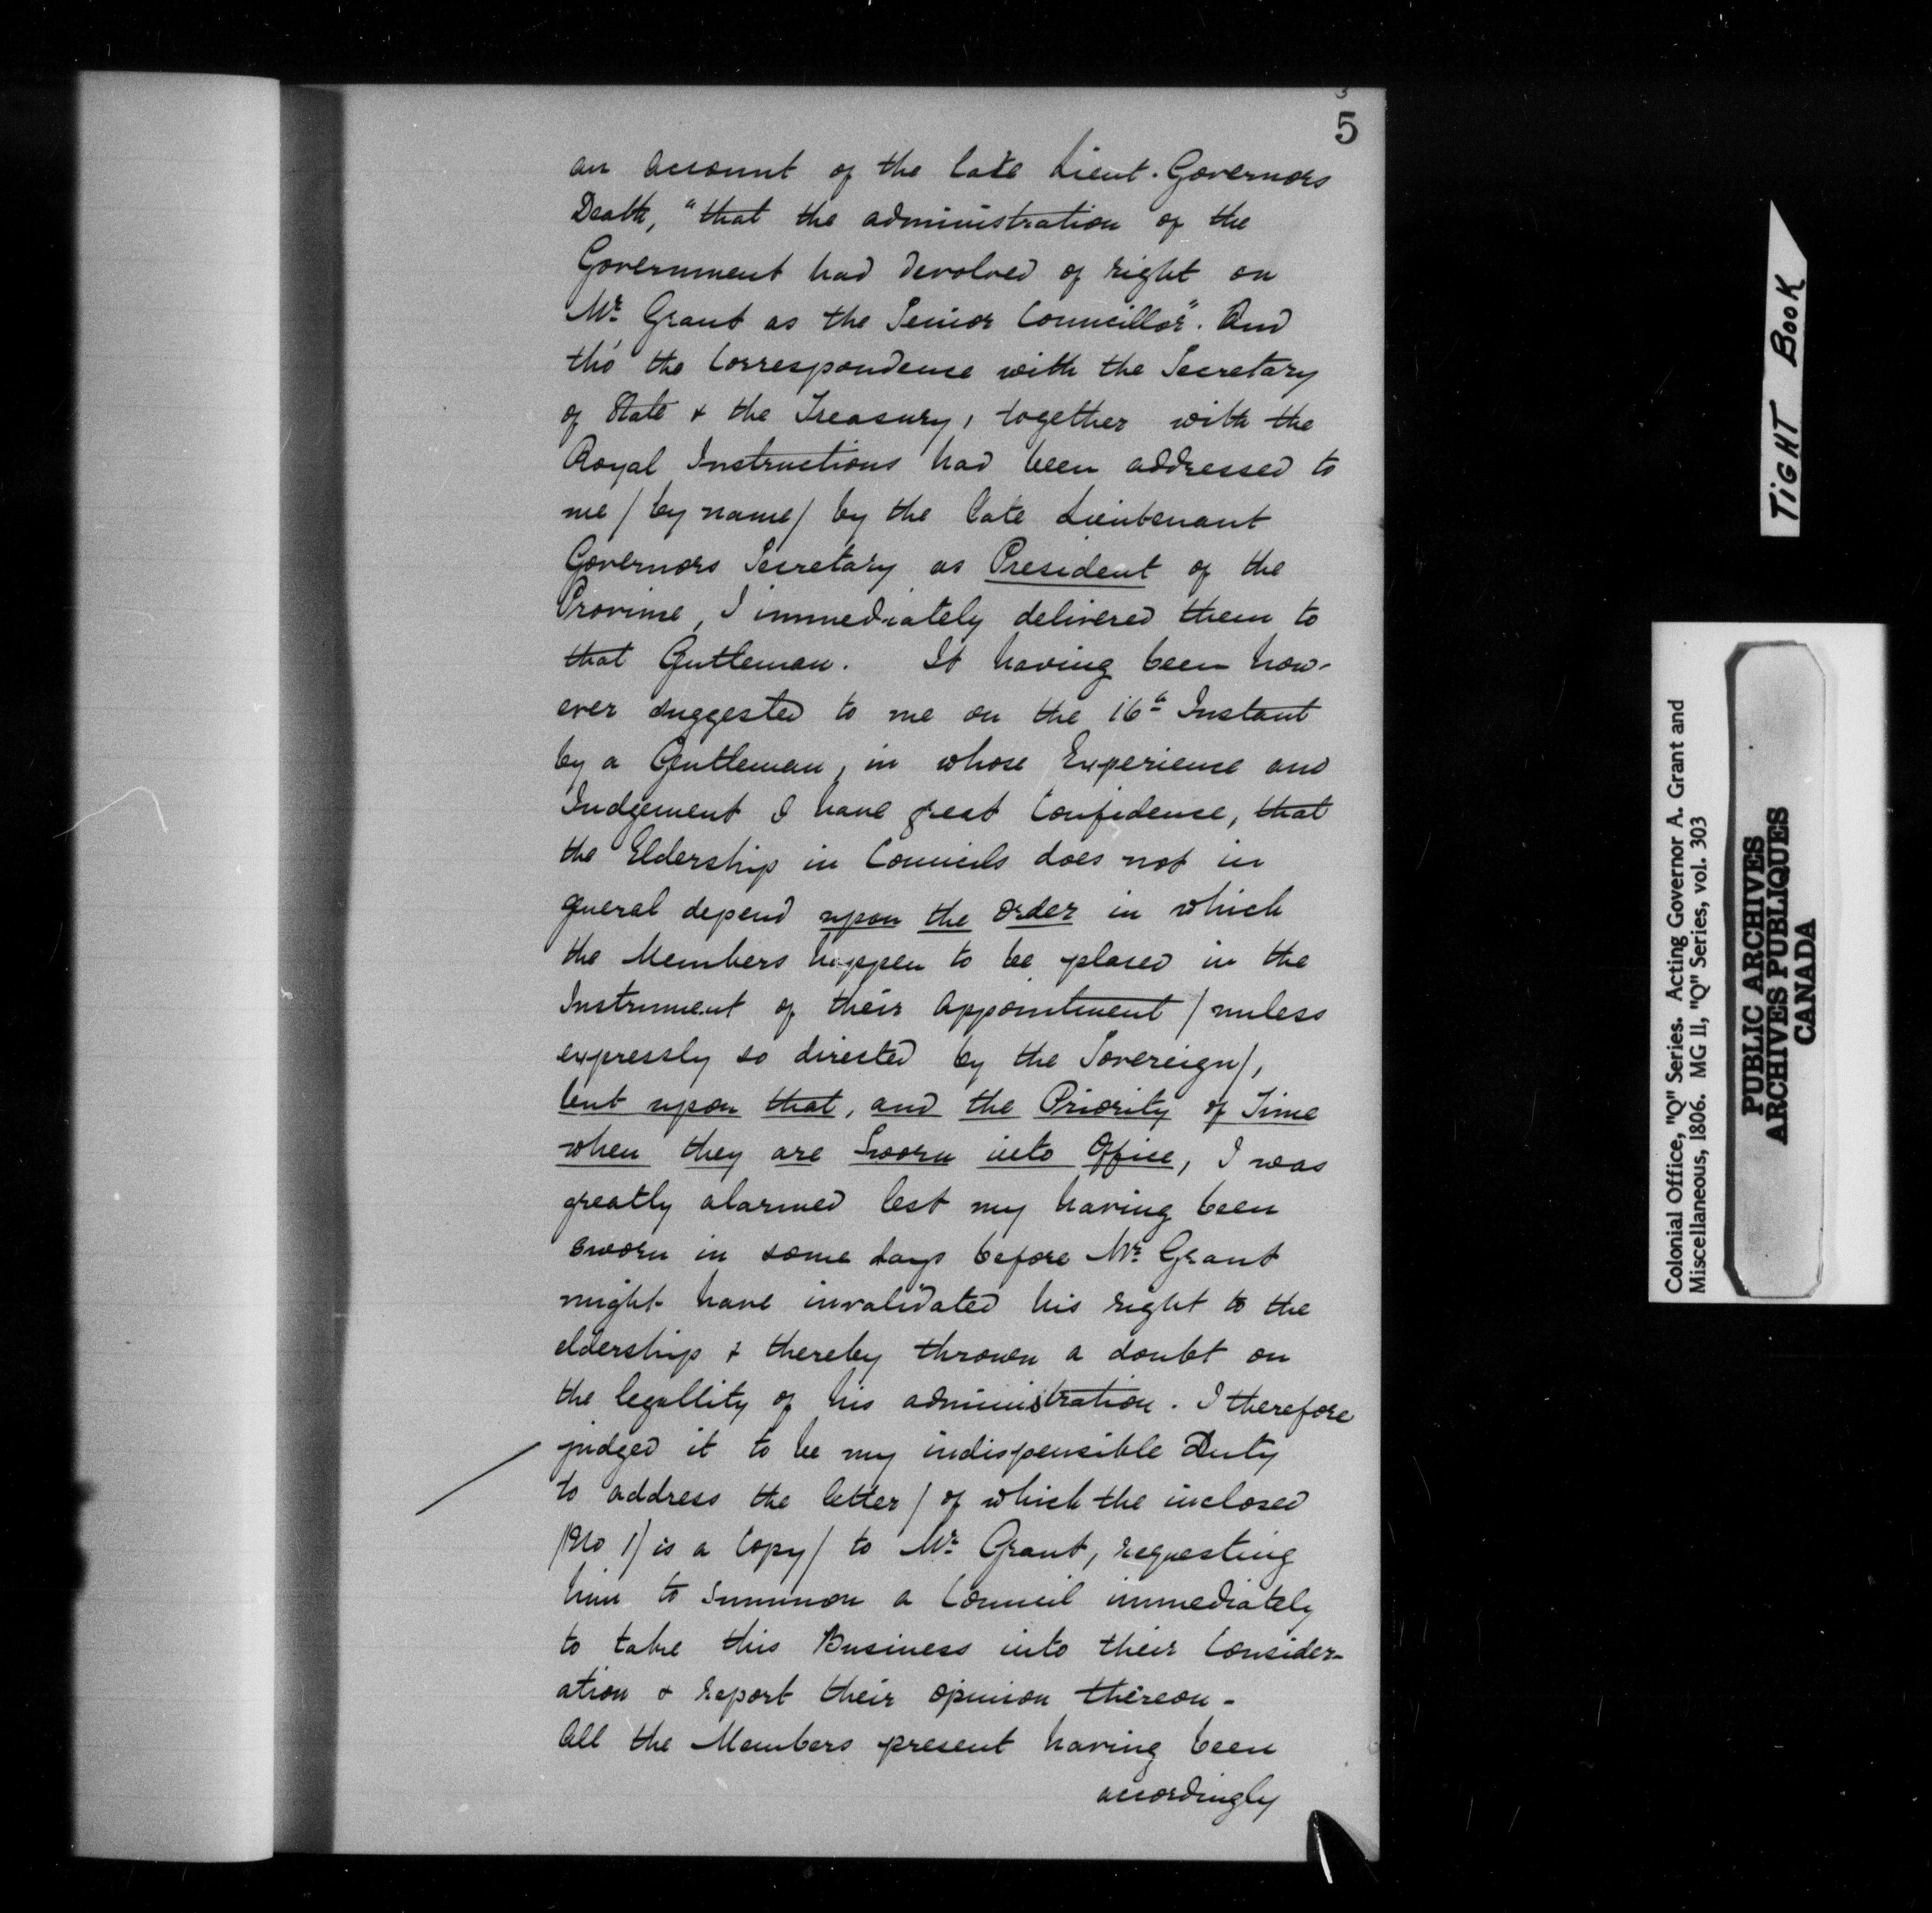 3
5
an account of the late Lieut. Governors
Death, "that the administration of the
Government had devolved of right on
Mr. Grant as the Senior Councillor". And
tho' the Correspondence with the Secretary
of State & the Treasury, together with the
Royal Instructions had been addressed to
me / by name / by the late Lieutenant
Governors Secretary as President of the
Province, I immediately delivered them to
that Gentleman. It having been how-
ever suggested to me on the 16th Instant
by a Gentleman, in whose Experience and
Judgement I have great Confidence, that
the Eldership in Councils does not in
general depend upon the order in which
the Members happen to be placed in the
Instrument of their appointment / unless
expressly so directed by the Sovereign /,
but upon that, and the Priority of Time
when they are Sworn into Office, I was
greatly alarmed lest my having been
sworn in some days before Mr. Grant
might have invalidated his right to the
eldership & thereby thrown a doubt on
the legallity of his administration. I therefore
judged it to be my indispensible Duty
to address the letter / of which the inclosed
/No 1/ is a Copy / to Mr. Grant, requesting
him to summon a Council immediately
to take this Business into their Consider-
ation & report their opinion thereon -
All the Members present having been
accordingly
TIGHT BOOK
Colonial Office, "Q" Series. Acting Governor A. Grant and
Miscellaneous, 1806. MG 11, "Q" Series, vol. 303
PUBLIC ARCHIVES
ARCHIVES PUBLIQUES
CANADA